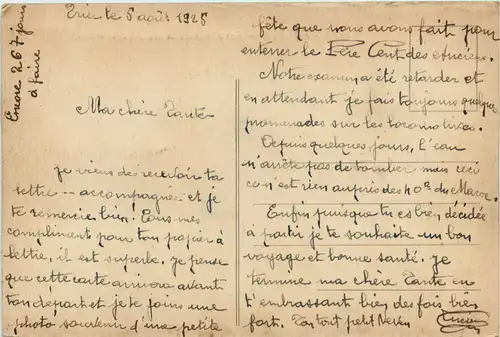 Encore 267 jours
à faire
le 5 août 1925
Ma chère Tante
je viens de recevoir ta
lettre -- accompagné et je
te remercie bien. Tous mes
compliment pour ton papier à
lettre, il est superbe. Je pense
que cette carte arrivera avant
ton départ et je te joins une
photo souvenir d'une petite
fête que nous avons fait pour
enterrer le Père Cent des Anciens.
Notre examen a été retarder et
en attendant je fais toujours quelques
promenades sur les locomotives.
Depuis quelques jours, l'eau
n'arrête pas de tomber mais ceci
ce n'est rien auprès des 40° du Maroc.
Enfin puisque tu es bien décidée
à partir je te souhaite un bon
voyage et bonne santé. Je
termine ma chère Tante en
t'embrassant bien des fois bien
fort. Ton tout petit Neveu